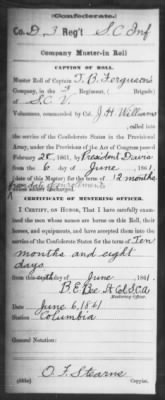 Confederate.
Co. D, 3 Reg't S.C. Inf
Company Muster-in Roll
CAPTION OF ROLL.
Muster Roll of Captain T. B. Ferguson's
Company, in the 3 Regiment, ( Brigade)
of S.C.V.
Volunteers, commanded by Col. J H Williams
, called into
the service of the Confederate States in the Provisional
Army, under the Provisions of the Act of Congress passed
February 28, 1861, by President Davis
from the 6 day of June, 1861,
date of this Muster) for the term of 12 months
from date of
CERTIFICATE OF MUSTERING OFFICER.
I CERTIFY, ON HONOR, That I have carefully exam-
ined the men whose names are borne on this Roll, their
horses, and equipments, and have accepted them into the
service of the Confederate States for the term of Ten
months and eight
days
from this sixth day of June, 1861.
B. E. Bee
Mustering Officer.
Date June 6, 1861
Station Columbia
General Notation:
O. F. Stearns